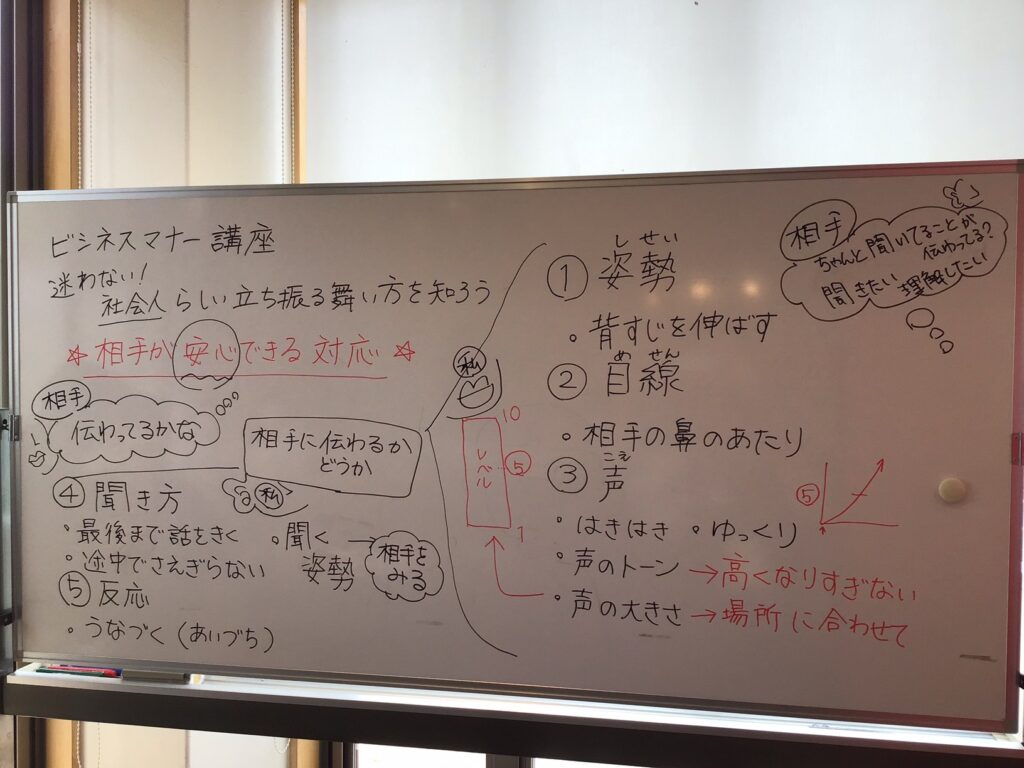 ビジネスマナー講座
迷わない!
社会人らしい立ち振る舞い方を知ろう
☆相手が安心できる対応☆
相手
伝わってるかな
相手に伝わるか
どうか
私
④聞き方
・最後まで話をきく
・途中でさえぎらない
・聞く
姿勢
→相手を
みる
⑤反応
・うなづく(あいづち)
私
10
レベル
⑤
1
しせい
①姿勢
・背すじを伸ばす
めせん
②目線
・相手の鼻のあたり
こえ
③声
・はきはき ・ゆっくり
・声のトーン→高くなりすぎない
・声の大きさ→場所に合わせて
⑤
相手
ちゃんと聞いてることが
伝わってる?
聞きたい 理解したい